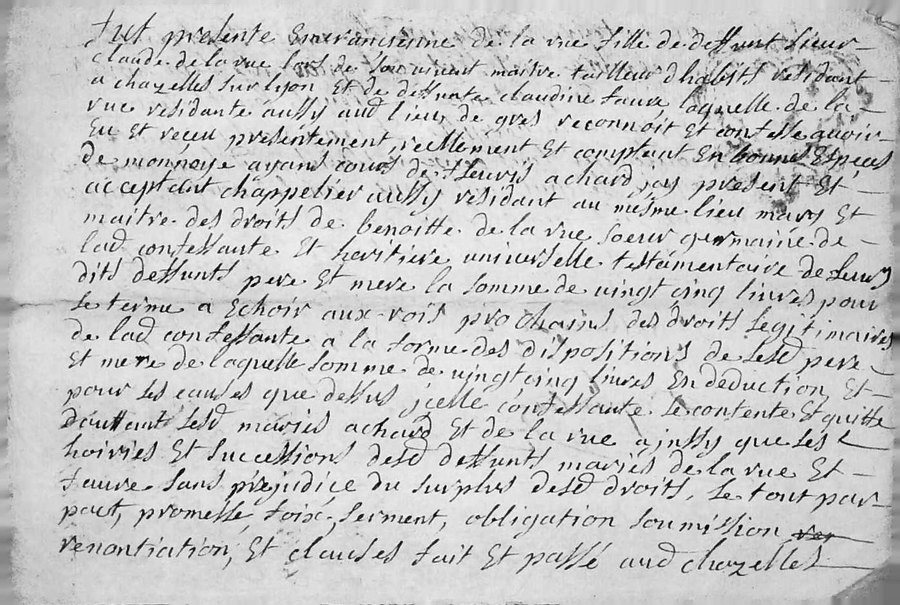 fut presente Emerancienne de la rue fille de deffunt sieur
claude de la rue lors de son vivent maitre tailleur d'habits residant
a chazelles sur lyon Et de deffunte claudine faure laquelle de la
rue residante aussy aud lieu, de gres reconnoit Et confesse avoir
Eu Et receu presentement, reellement Et comptant En bonnes Especes
de monnoye ayans cours de fleuris achard jcy present Et
acceptant chappelier aussy residant au mesme lieu mary Et
maitre des droits de benoitte de la rue soeur germaine de
lad confessante Et heritiere universelle testamentaire de leurs
dits deffunts pere Et mere la somme de vingt cinq livres pour
le terme a Echoir aux rois prochains des droits legitimaires
de lad confessante a la forme des dispositions de sesd pere
Et mere de laquelle somme de vingt cinq livres En deduction Et
pour les causes que dessus jcelle confessante se contente Et quitte
d'auttant lesd mariés achard Et de la rue ainssy que les
hoiries Et successions desd deffunts mariés de la rue Et
faure sans prejudice du surplus desd droits, le tout par
pact, promesse, foix, serment, obligation soumission
renontiation, Et clauses fait Et passé aud chazelles